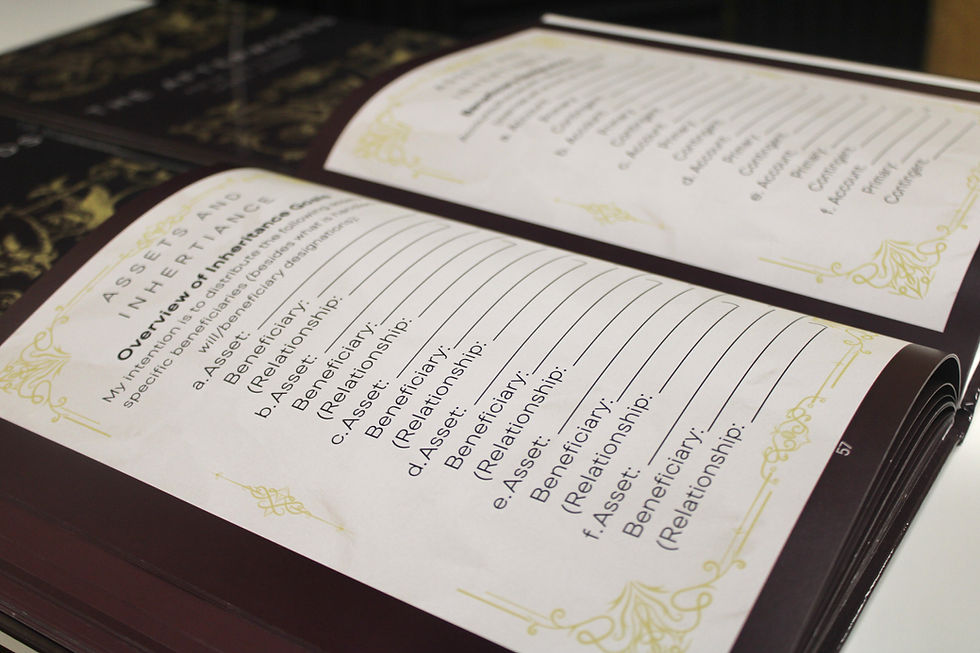 THE AFTERPARTY
ASSETS AND
INHERTIANCE
Overview of Inheritance Goals
My intention is to distribute the following
specific beneficiaries (besides what is
will/beneficiary designations):
a. Asset:
Beneficiary:
(Relationship:
b. Asset:
Beneficiary:
(Relationship:
c. Asset:
Beneficiary:
(Relationship:
d. Asset:
Beneficiary:
(Relationship:
e. Asset:
Beneficiary:
(Relationship:
f. Asset:
Beneficiary:
(Relationship:
57
a. Account
Primary
Contingent
b. Account
Primary
Contingent
c. Account
Primary
Contingent
d. Account
Primary
Contingent
e. Account
Primary
Contingent
f. Account
Primary
Contingent